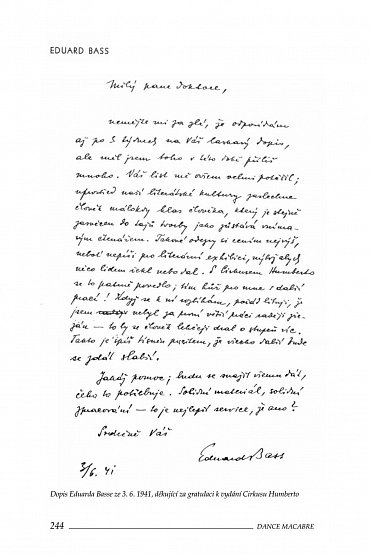 EDUARD BASS
Milý pane doktore,
nemějte mi za zlé, že odpovídám
až po 3 týdnech na Váš laskavý dopis,
ale měl jsem toho v této době příliš
mnoho. Váš list mě ovšem velmi potěšil;
uprostřed naší literátské kultury zaslechne
člověk málokdy hlas člověka, který je stejně
zasvěcen do taju tvorby jako zůstává vníma-
vým čtenářem. Takové odezvy si cením nejvýš,
neboť nepíši pro literární exhibici, nýbrž abych
něco lidem řekl nebo dal. S Cirkusem Humberto
se to patrně povedlo; tím hůř pro mne s další
prací! Když se k ní vzpínám, lituji, že
jsem nebyl za první větší práci raději
— to by se člověk lehčeji dral o stupeň víc.
Takto je spíš tísněn pocitem, že všecko další bude
se zdát slabší.
Jakáž pomoc; budu se snažit všemu dát,
čeho to potřebuje. Solidní materiál, solidní
zpracování — to je nejlepší service, že ano?
Srdečně Váš
3/6. 41
Eduard Bass
Dopis Eduarda Basse ze 3. 6. 1941, děkující za gratulaci k vydání Cirkusu Humberto
244
DANCE MACABRE